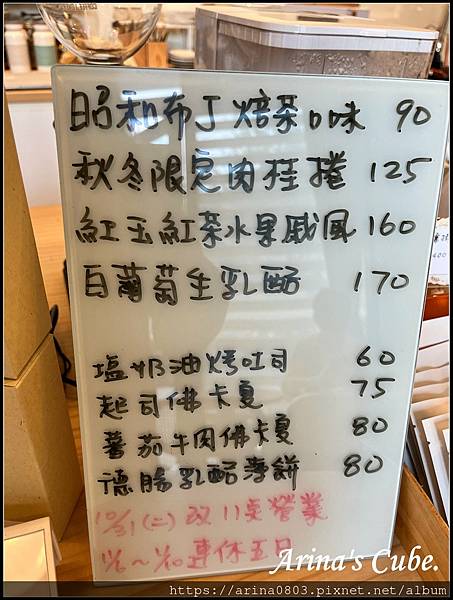 昭和布丁焙茶口味 90
秋冬限定肉桂捲 125
紅玉紅茶水果戚風 160
白葡萄生乳酪 170
塩奶油烤吐司 60
起司佛卡夏 75
蕃茄牛肉佛卡夏 80
德腸乳酪薄餅 80
10/31(二)改11点營業
11/6~11/10連休五日
Arina's Cube.
https://arina0803.pixnet.net/album